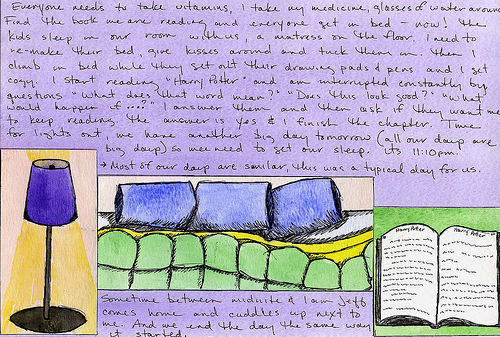 Everyone needs to take vitamins, I take my medicine, glasses of water around
Find the book we are reading and everyone get in bed - now! The
kids sleep in our room with us, a matress on the floor. I need to
re-make their bed, give kisses around and tuck them in. Then I
climb in bed while they get out their drawing pads & pens and I get
cozy. I start reading "Harry Potter" and am interrupted constantly by
questions "What does that word mean?" "Does this look good?" "What
would happen if ...?" I answer them and then ask if they want me
to keep reading. The answer is yes & I finish the chapter. Time
for lights out, we have another big day tomorrow (all our days are
big days) so we need to get our sleep. its 11:10pm.
→ Most of our days are similar, this was a typical day for us.
Harry Potter Harry Potter
Sometime between midnite & 1am Jeff
comes home and cuddles up next to
me. And we end the day the same way
it started.